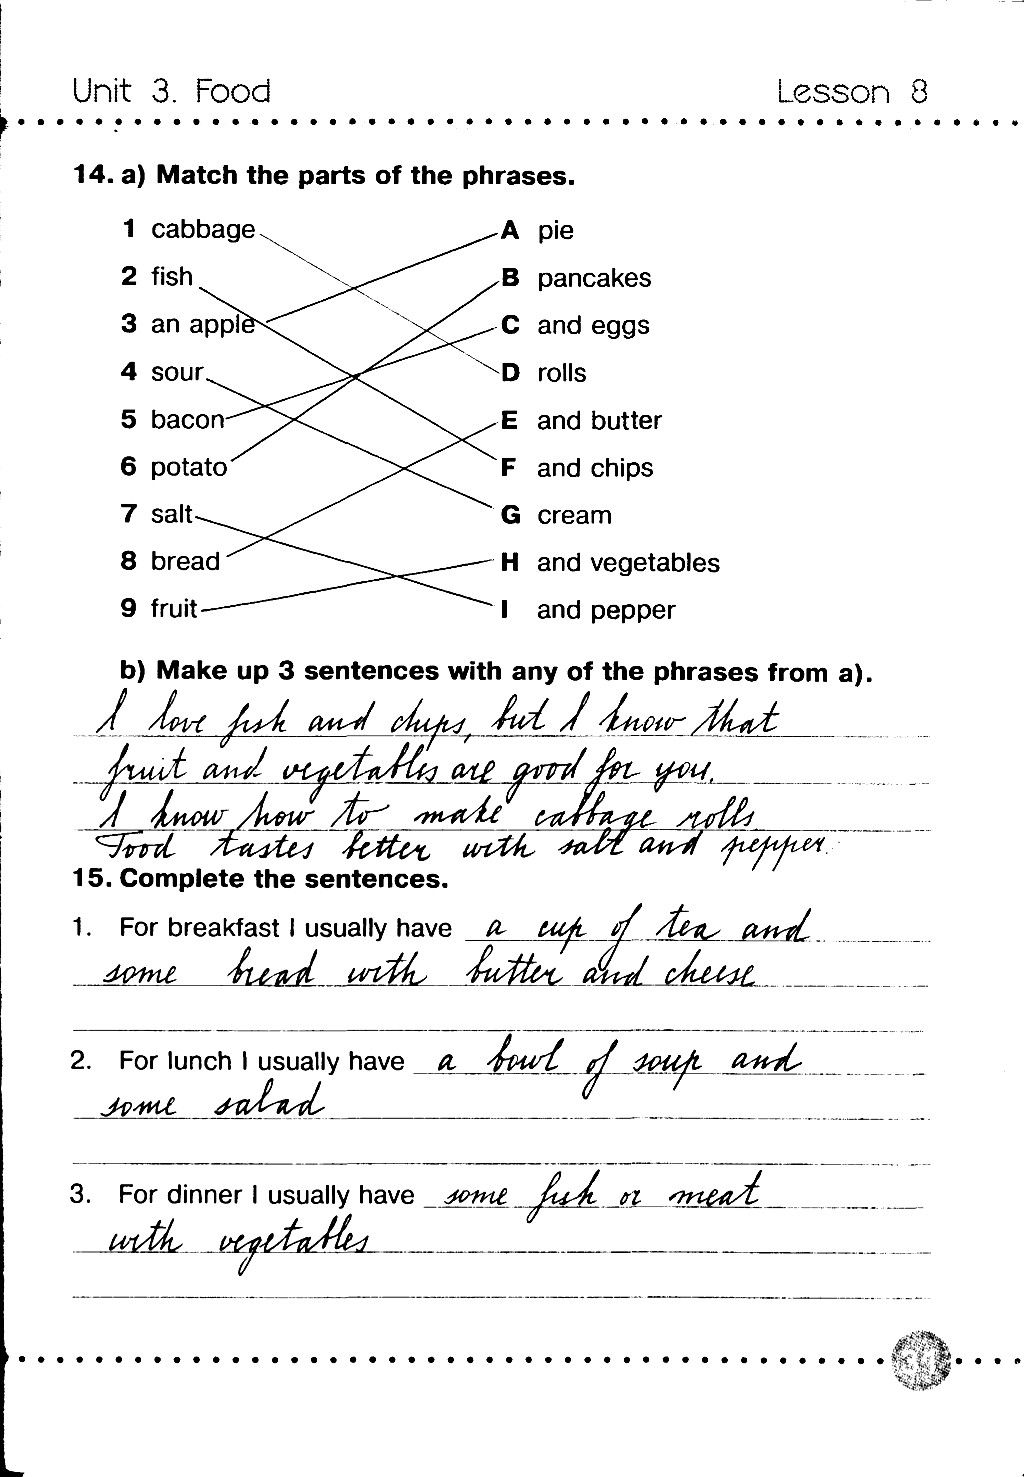 Unit 3. Food Lesson 8
14. a) Match the parts of the phrases.
1 cabbage A pie
2 fish B pancakes
3 an apple C and eggs
4 sour D rolls
5 bacon E and butter
6 potato F and chips
7 salt G cream
8 bread H and vegetables
9 fruit I and pepper
b) Make up 3 sentences with any of the phrases from a).
I love fish and chips, but I know that
fruit and vegetables are good for you.
I know how to make cabbage rolls
Food tastes better with salt and pepper.
15. Complete the sentences.
1. For breakfast I usually have a cup of tea and
some bread with butter and cheese
2. For lunch I usually have a bowl of soup and
some salad
3. For dinner I usually have some fish or meat
with vegetables
31